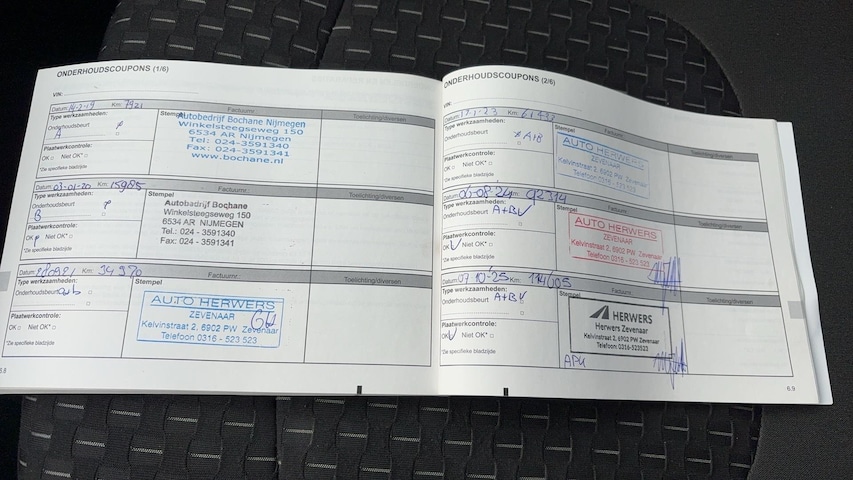 ONDERHOUDSCOUPONS (1/6)
VIN:
Datum: 14-2-19 Km: 7921 Factuurnr.: Toelichting/diversen
Type werkzaamheden:
Onderhoudsbeurt
A
Plaatwerkcontrole:
OK □ Niet OK* □
*Zie specifieke bladzijde
Stempel
Autobedrijf Bochane Nijmegen
Winkelsteegseweg 150
6534 AR Nijmegen
Tel: 024-3591340
Fax: 024-3591341
www.bochane.nl
Datum: 03-01-20 Km: 15985 Factuurnr.: Toelichting/diversen
Type werkzaamheden:
Onderhoudsbeurt
B
Plaatwerkcontrole:
OK Niet OK* □
*Zie specifieke bladzijde
Stempel
Autobedrijf Bochane
Winkelsteegseweg 150
6534 AR NIJMEGEN
Tel.: 024 - 3591340
Fax: 024 - 3591341
Datum: Km: 34970 Factuurnr.: Toelichting/diversen
Type werkzaamheden:
Onderhoudsbeurt
Plaatwerkcontrole:
OK □ Niet OK* □
*Zie specifieke bladzijde
Stempel
AUTO HERWERS
ZEVENAAR
Kelvinstraat 2, 6902 PW Zevenaar
Telefoon 0316 - 523 523
6.8
ONDERHOUDSCOUPONS (2/6)
VIN:
Datum: Km: Factuurnr.: Toelichting/diversen
Type werkzaamheden:
Onderhoudsbeurt A+B
Plaatwerkcontrole:
OK □ Niet OK* □
*Zie specifieke bladzijde
Stempel
AUTO HERWERS
ZEVENAAR
Kelvinstraat 2, 6902 PW Zevenaar
Telefoon 0316 - 523 523
Datum: 06-08-24 Km: 92314 Factuurnr.: Toelichting/diversen
Type werkzaamheden:
Onderhoudsbeurt A+B V
Plaatwerkcontrole:
OK V Niet OK* □
*Zie specifieke bladzijde
Stempel
AUTO HERWERS
ZEVENAAR
Kelvinstraat 2, 6902 PW Zevenaar
Telefoon 0316 - 523 523
Datum: 07-10-25 Km: 114005 Factuurnr.: Toelichting/diversen
Type werkzaamheden:
Onderhoudsbeurt A+B V
Plaatwerkcontrole:
OK V Niet OK* □
*Zie specifieke bladzijde
Stempel
HERWERS
Herwers Zevenaar
Kelvinstraat 2, 6902 PW Zevenaar
Telefoon: 0316-523523
APK
6.9